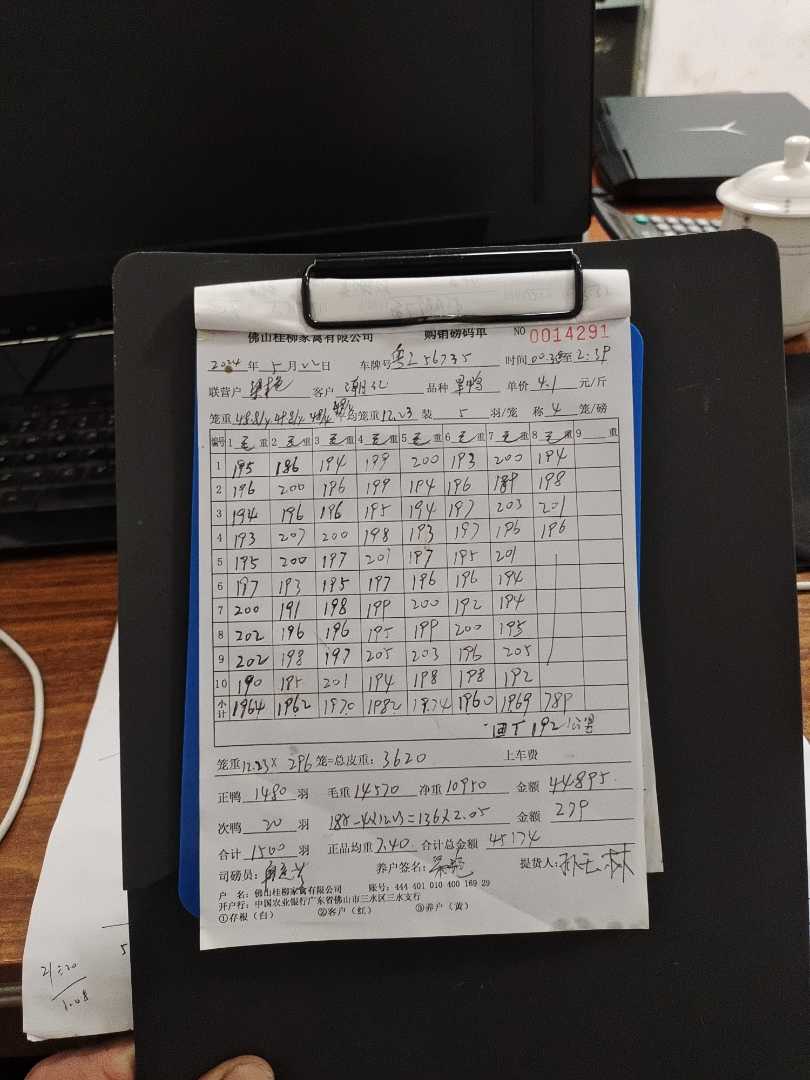 佛山桂柳家禽有限公司 购销磅码单 NO 0014291
2024 年 5 月 22 日 车牌号 粤Z56735 时间 00:38 至 2:39
联营户 客户 潮亿 品种 单价 4.1 元/斤
笼重 48.8/4 48/4 均笼重 12.23 装 5 羽/笼 称 4 笼/磅
编号 1 毛 重 2 毛 重 3 毛 重 4 毛 重 5 毛 重 6 毛 重 7 毛 重 8 毛 重 9 重
1 195 186 194 199 200 193 200 194
2 196 200 196 199 194 196 189 198
3 194 196 196 195 194 197 203 201
4 193 207 200 198 193 197 196 196
5 195 200 197 201 197 195 201
6 197 193 195 197 196 196 194
7 200 191 198 199 200 192 194
8 202 196 196 195 199 200 195
9 202 198 197 205 203 196 205
10 190 195 201 194 198 198 192
小计 1964 1962 1970 1982 1974 1960 1969 789
192公斤
笼重 12.23 X 296 笼=总皮重: 3620 上车费
正鸭 1480 羽 毛重 14570 净重 10950 金额 44895.
次鸭 20 羽 185-4X12.23=136X2.05 金额 279
合计 1500 羽 正品均重 7.40 合计总金额 45174
司磅员: 养户签名: 提货人:
户 名: 佛山桂柳家禽有限公司 账号: 444 401 010 400 169 29
开户行: 中国农业银行广东省佛山市三水区三水支行
①存根(白) ②客户(红) ③养户(黄)
21÷20
1.08
5